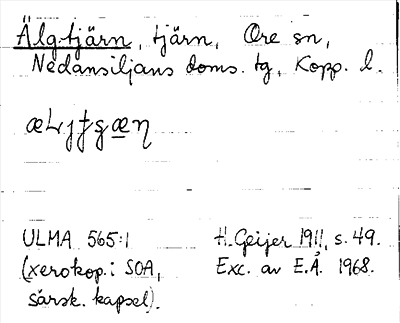 Älgtjärn, tjärn, Ore sn,
Nedansiljans doms. tg, Kopp. l.
ULMA 565:1
(xerokop. i SOA,
särsk. kapsel).
H. Geijer 1911, s. 49.
Exc. av E.Å. 1968.